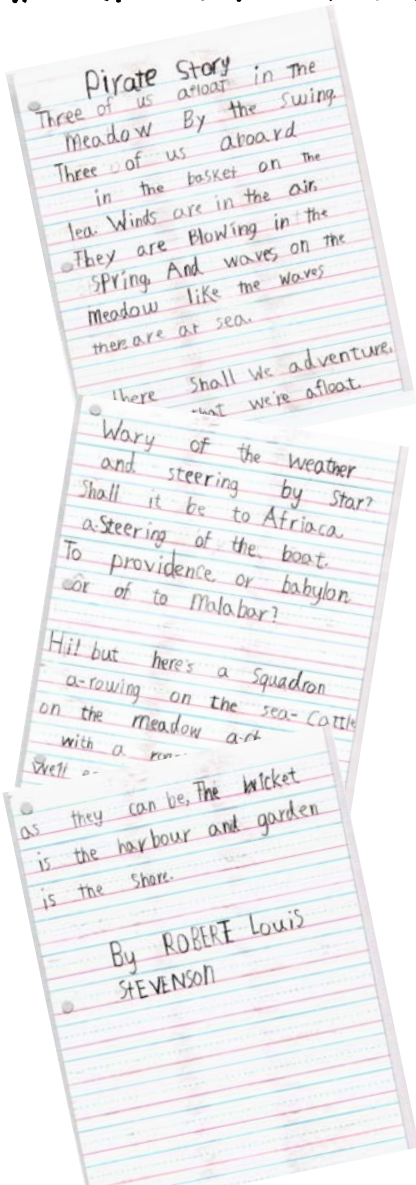 Pirate Story
Three of us afloat in The
meadow By the Swing.
Three of us aboard
in the basket on the
lea. Winds are in the air,
They are Blowing in the
spring. And waves on the
meadow like the waves
there are at sea.
there Shall We adventure,
that we're afloat.
Wary of the weather
and steering by Star?
Shall it be to Afriaca
a-Steering of the boat.
To providence or babylon
or of to Malabar?
Hi! but here's a Squadron
a-rowing on the sea- Cattle
on the meadow a-d
with a
We'll
as they can be, The wicket
is the harbour and garden
is the Shore.
By ROBERT Louis
StEVENSon